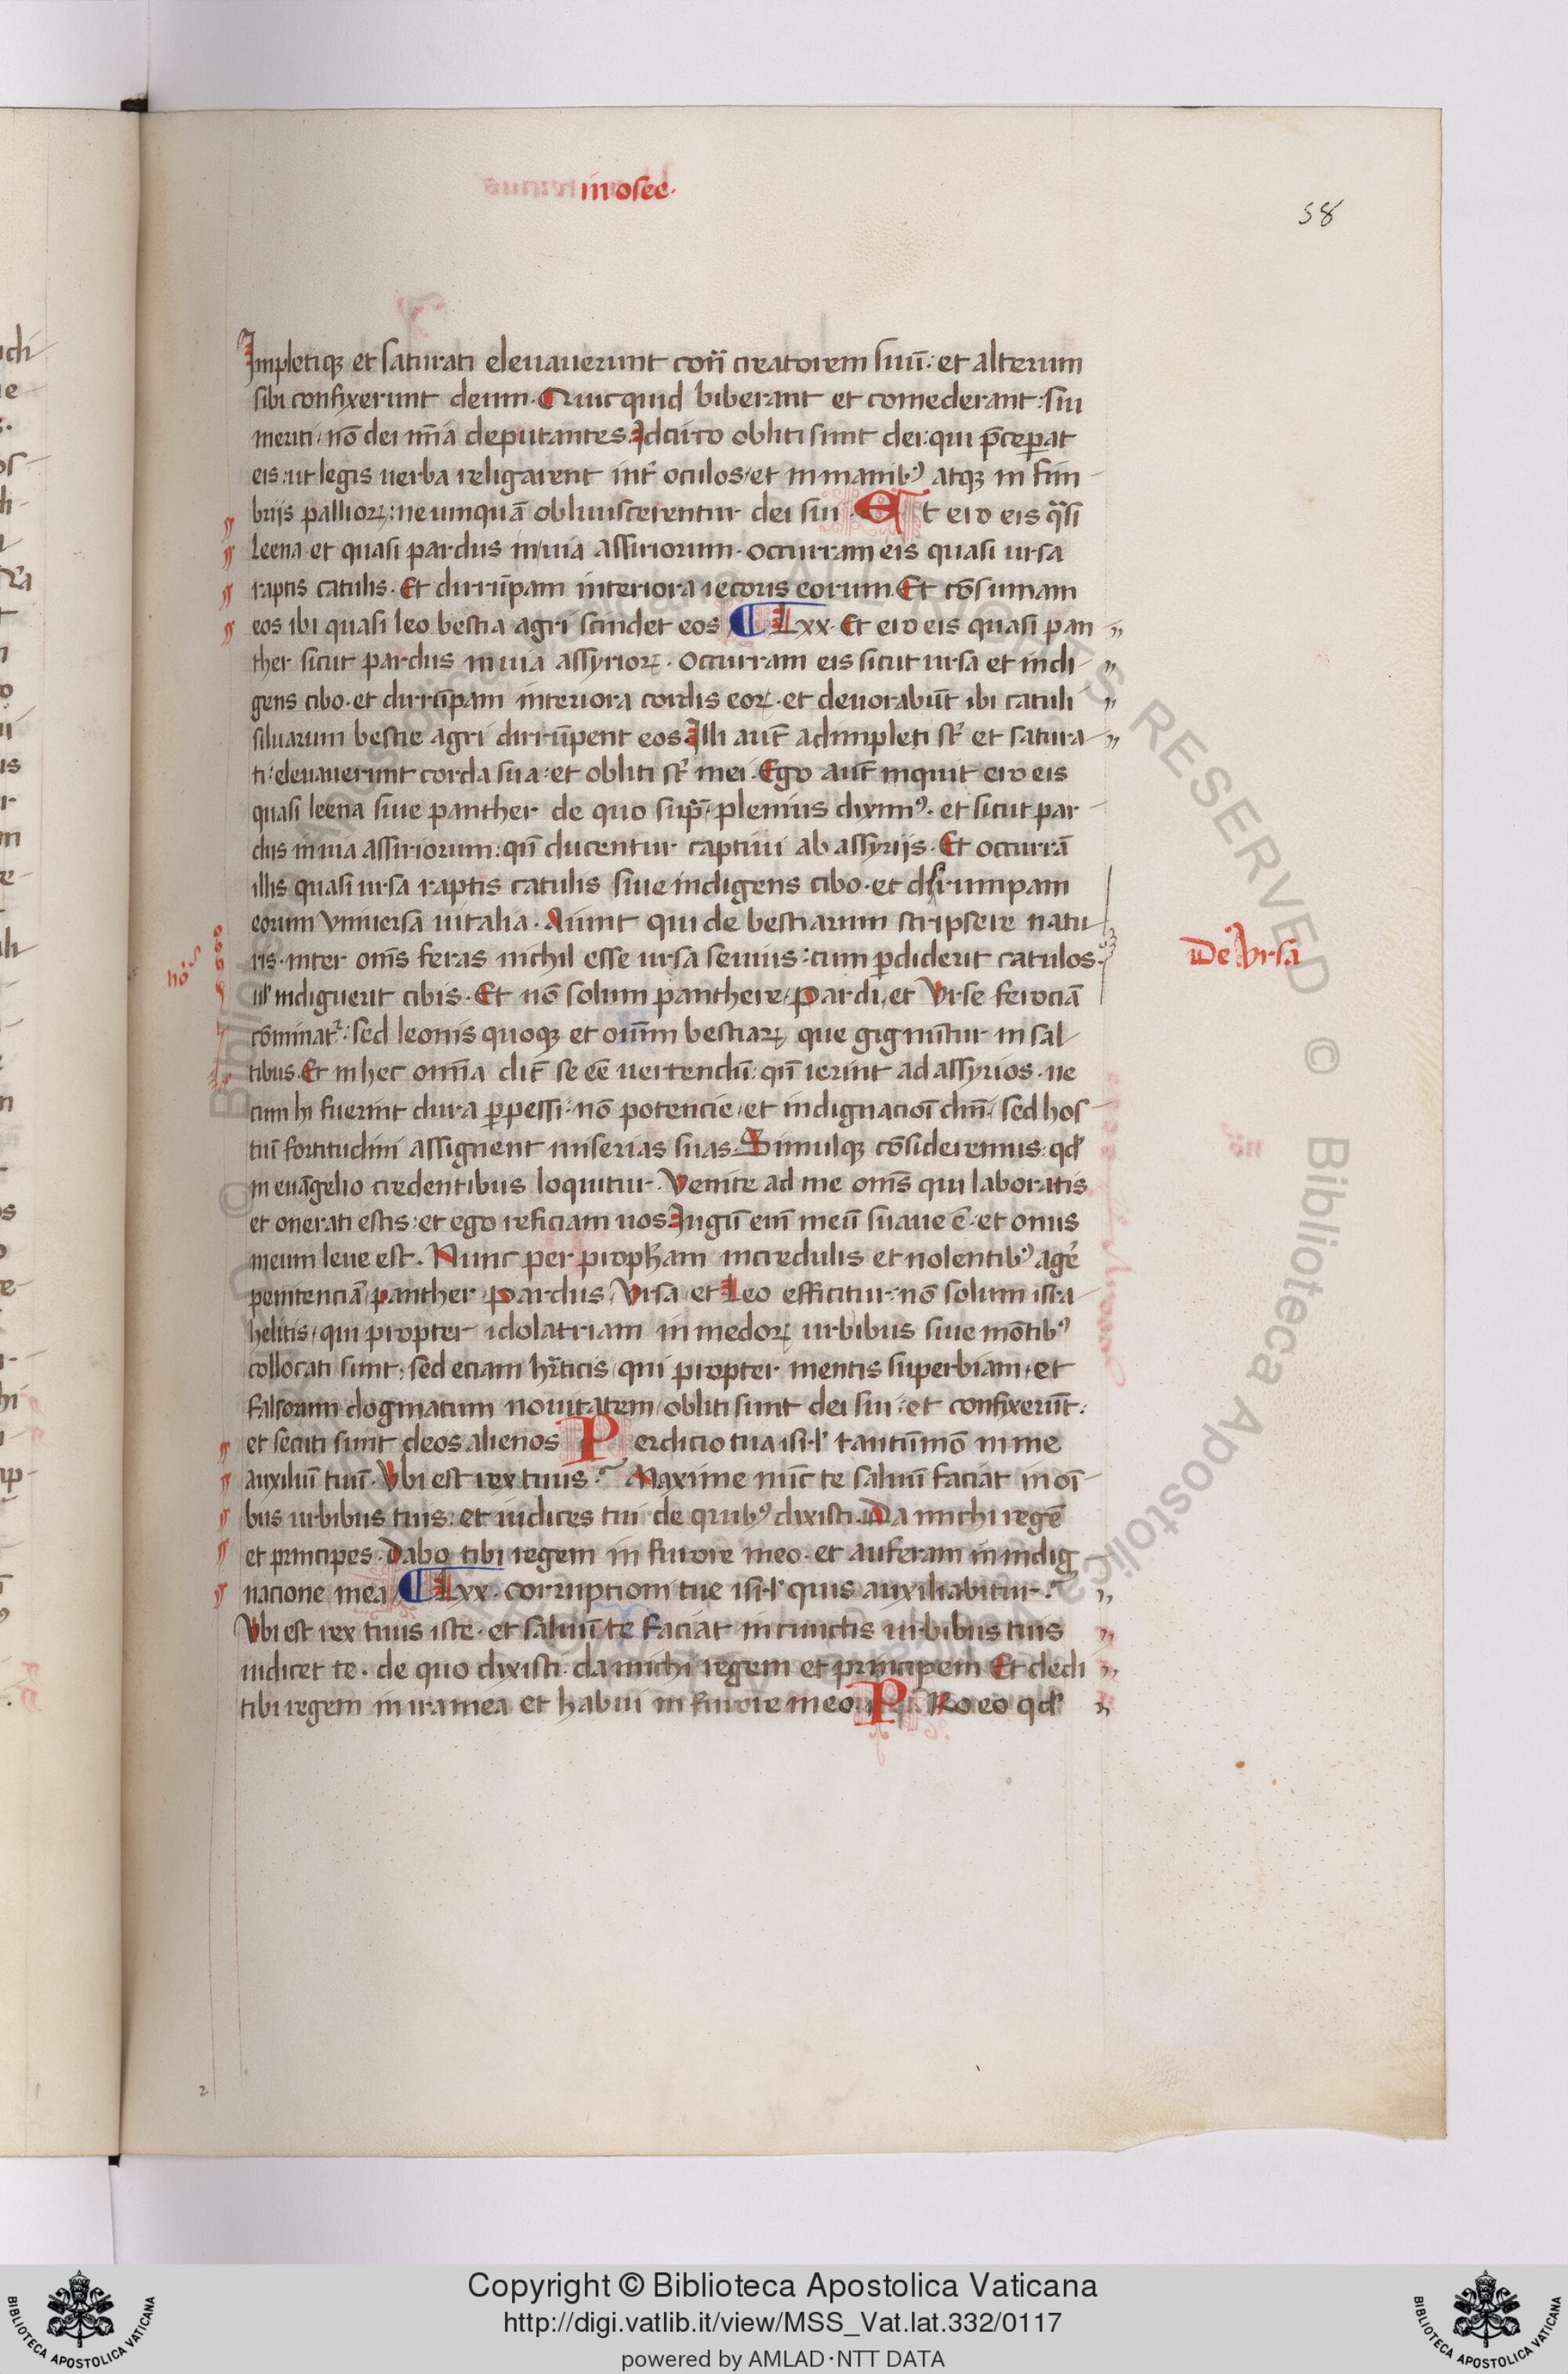 in osee·
58
Impletiqꝫ et saturati eleuauerunt cont̃ creatorem suũ: et alterum
sibi confixerunt deum. Quicquid biberant et comederant: sui
meriti, nõ dei mĩa deputantes. Idcirco obliti sunt dei: qui p̃ceꝑat
eis: ut legis uerba religarent int̃ oculos, et in manibꝰ atqꝫ in fim-
brijs pallioꝝ: ne umquã obliuiscerentur dei sui. Et ero eis q̃si
leena et quasi pardus in uia assiriorum. occurram eis quasi ursa
raptis catulis. Et dirrũpam interiora iecoris eorum. Et cõsumam
eos ibi quasi leo bestia agri scindet eos Lxx. Et ero eis quasi pan
ther sicut pardus in uia assyrioꝝ. Occurram eis sicut ursa et indi-
gens cibo. et dirrũpam interiora cordis eoꝝ. et deuorabũt ibi catuli
siluarum bestie agri dirrũpent eos. Illi aut̃ adimpleti st̃ et satura-
ti: eleuauerunt corda sua: et obliti st̃ mei. Ego aut̃ inquit ero eis
quasi leena siue panther de quo sup̃, plenius diximꝰ. et sicut par-
dus in uia assiriorum: qñ ducentur captiui ab assyrijs. Et occurrã
illis quasi ursa raptis catulis siue indigens cibo. et disrumpam
eorum vniuersa uitalia. Aiunt qui de bestiarum scripsere natu-
ris. inter om̃s feras nichil esse ursa seuius: cum ꝑdiderit catulos.
ul̃ indiguerit cibis. Et nõ solum panthere, pardi, et vrse ferociã
cõminat᷑: sed leonis quoqꝫ et oim̃ bestiaꝝ que gignũtur in sal-
tibus. Et in hec om̃ia dic̃ se eẽ uertendũ: qñ ierint ad assyrios. ne
cum hi fuerint dura ꝑpessi: nõ potencie, et indignacioĩ dñi, sed hos-
tiũ fortitudini assignent miserias suas. Simulqꝫ cõsideremus: qđ
in euãgelio credentibus loquitur. Venite ad me om̃s qui laboratis
et onerati estis: et ego reficiam uos. Iugũ eni᷑ meũ suaue ẽ. et onus
meum leue est. Nunc per proph̃am incredulis et nolentibꝰ age᷑
penitenciã, panther, pardus, vrsa, et Leo efficitur: nõ solum isra-
helitis, qui propter idolatriam in medoꝝ urbibus siue mõtibꝰ
collocati sunt: sed eciam hr̃ticis, qui propter mentis superbiam, et
falsorum dogmatum nouitatem, obliti sunt dei sui: et confixerũt:
et secuti sunt deos alienos Perdicio tua isr̃l tantũmõ in me
auxiliũ tuũ. Vbi est rex tuus? Maxime nũc te saluũ faciat in oĩ-
bus urbibus tuis: et iudices tui de quibꝰ dixisti. Da michi regẽ
et principes. Dabo tibi regem in furore meo. et auferam in indig-
nacione mea Lxx. corruptioni tue isr̃l quis auxiliabitur?
Vbi est rex tuus iste. et saluũ te faciat in cunctis urbibus tuis
iudicet te. de quo dixisti. da michi regem et principem Et dedi
tibi regem in ira mea et habui in furore meo. PRo eo qđ
De vrsa
Copyright © Biblioteca Apostolica Vaticana
http://digi.vatlib.it/view/MSS_Vat.lat.332/0117
powered by AMLAD·NTT DATA
BIBLIOTECA APOSTOLICA VATICANA
BIBLIOTECA APOSTOLICA VATICANA